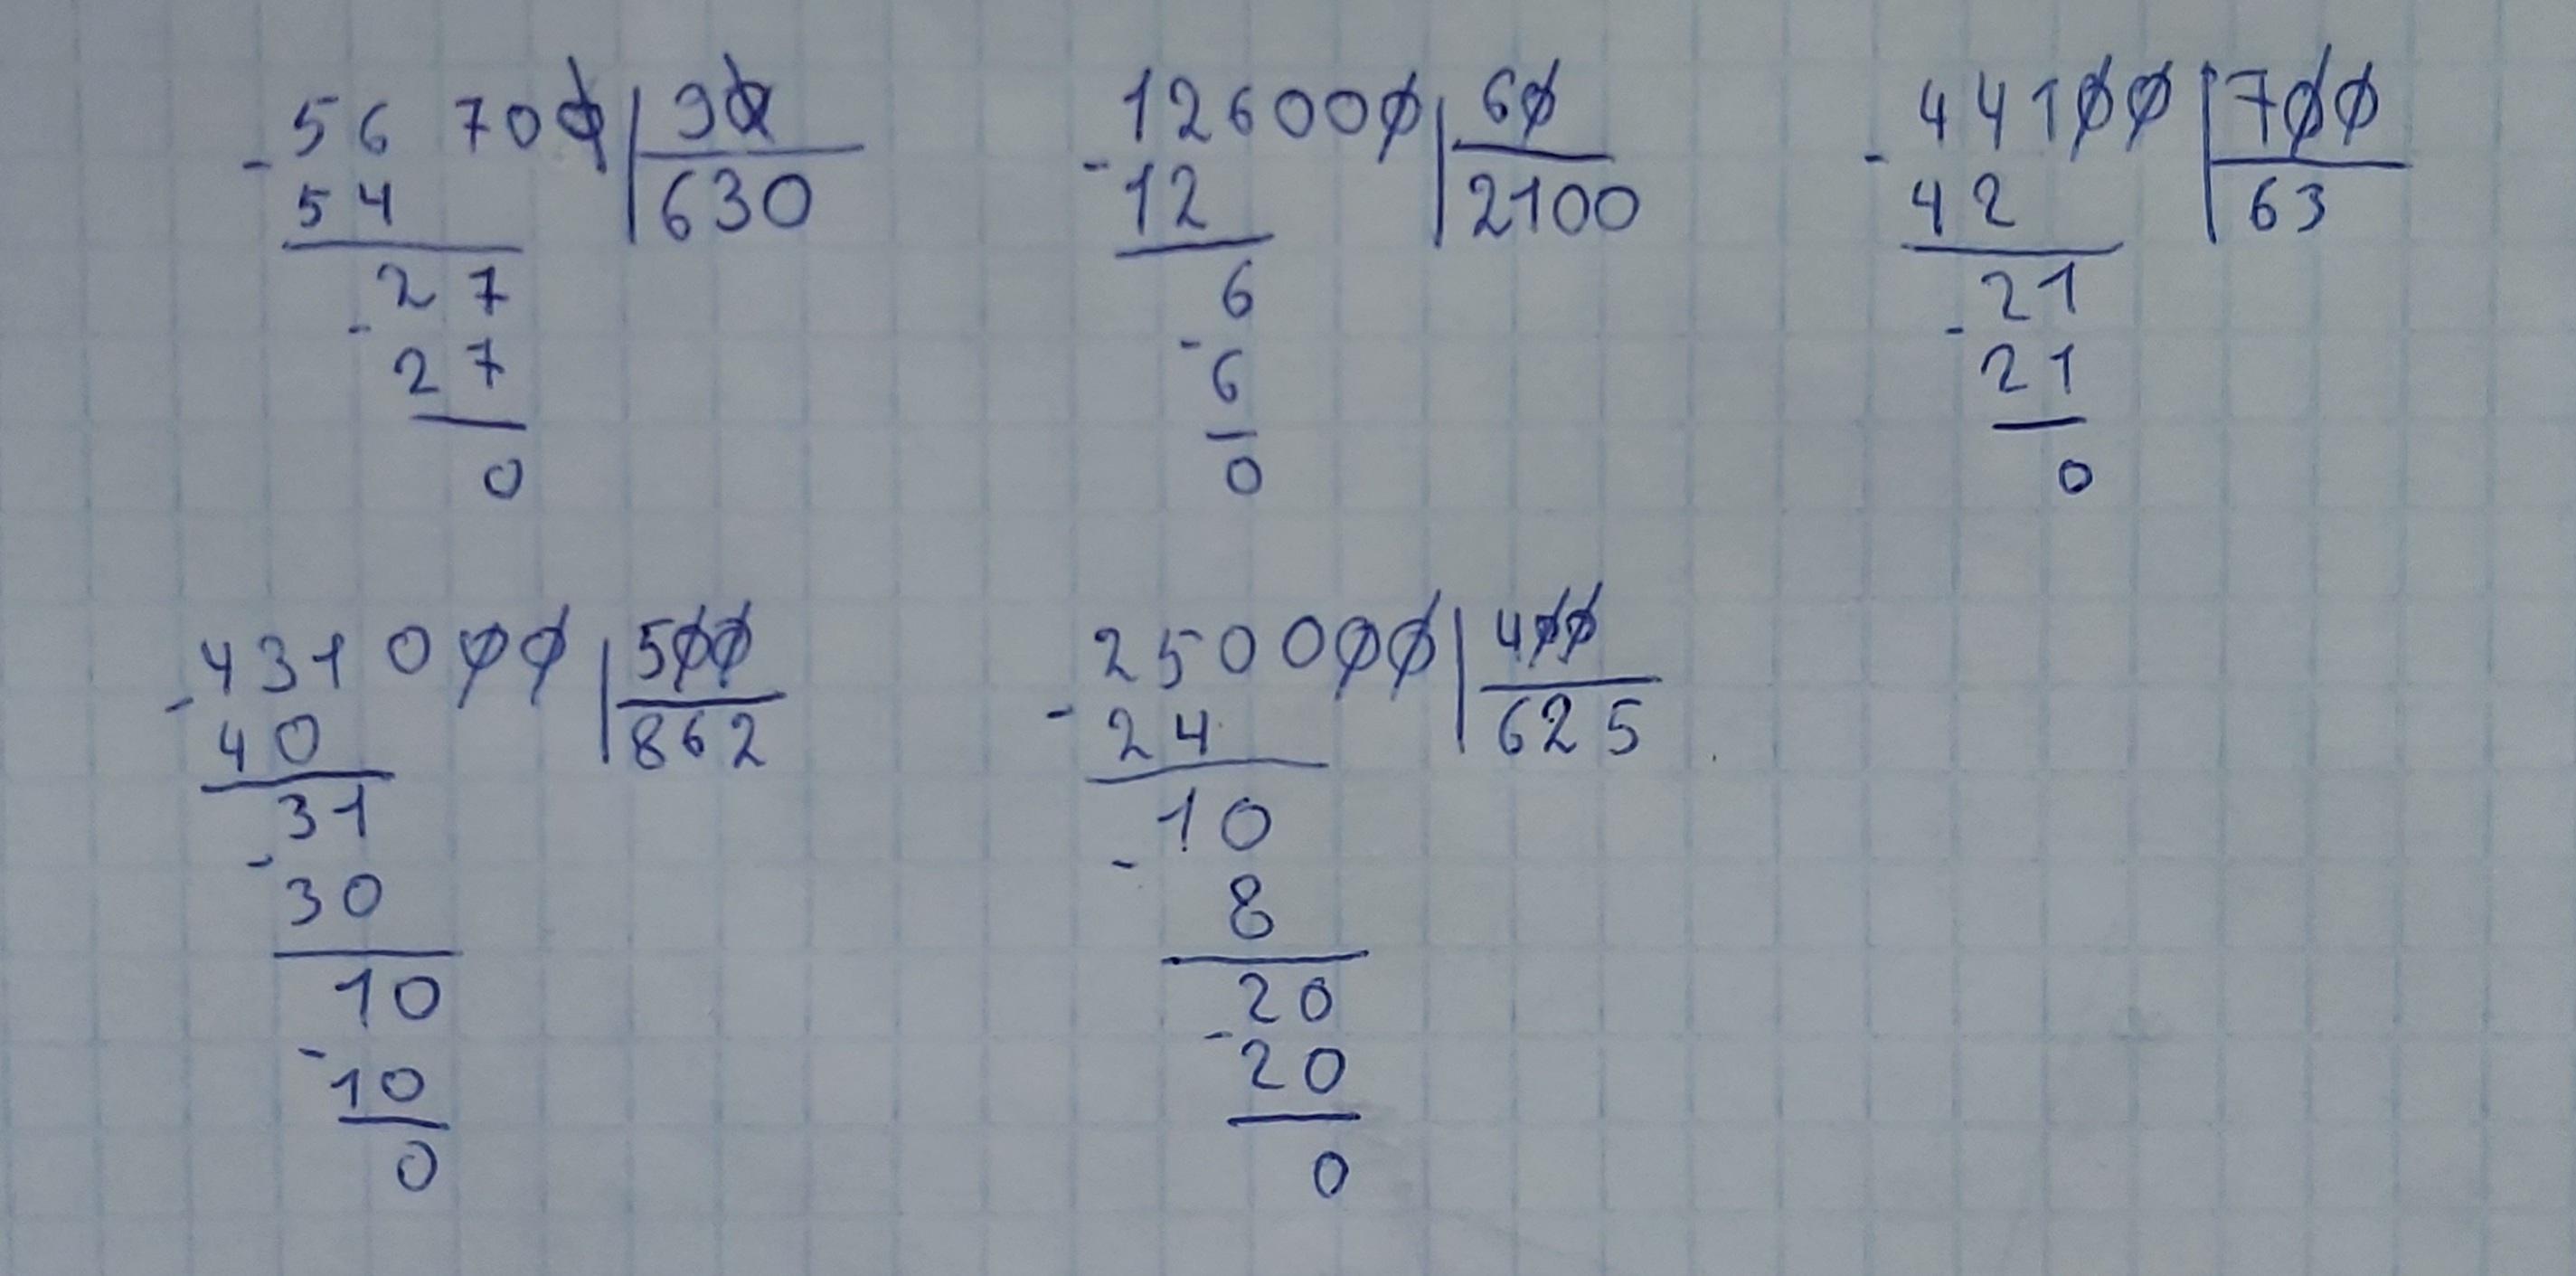 56 700 | 90
- 54 | 630
27
- 27
0
126000 | 60
- 12 | 2100
6
- 6
0
44100 | 700
- 42 | 63
21
- 21
0
431000 | 500
- 40 | 862
31
- 30
10
- 10
0
250000 | 400
- 24 | 625
10
- 8
20
- 20
0